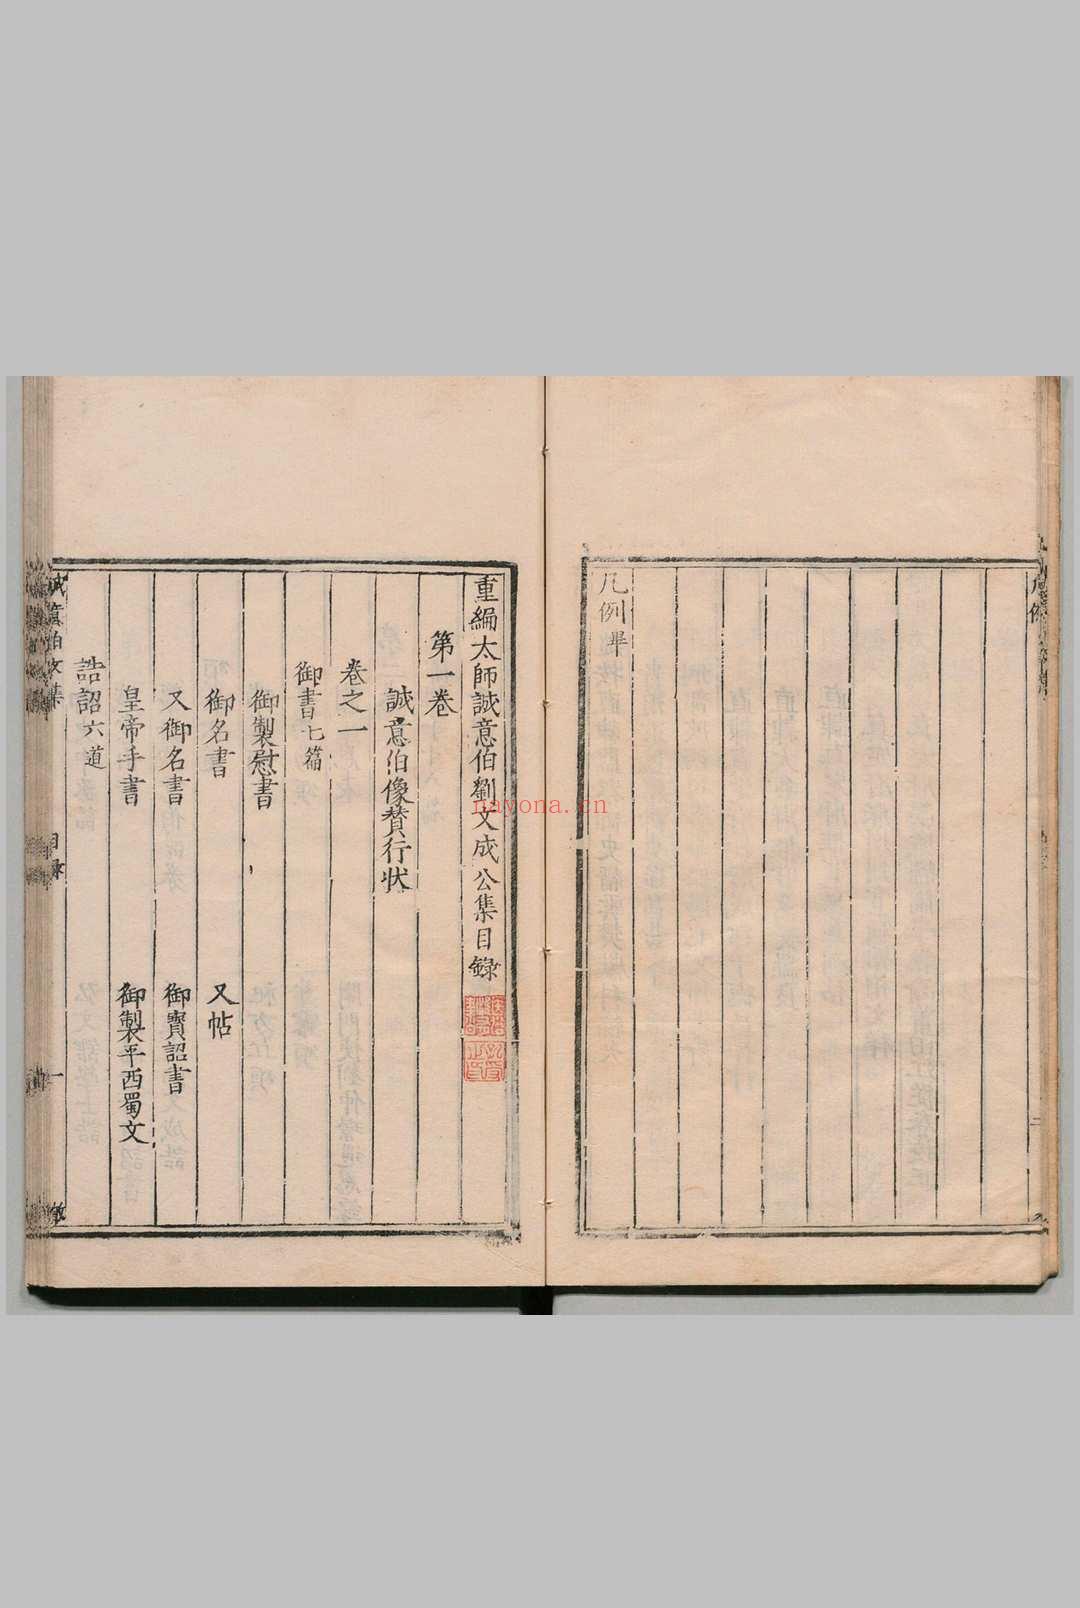 凡例畢
重編太師誠意伯劉文成公集目錄
第一卷
誠意伯像賛行状
卷之一
御書七篇
御製慰書
御名書 又帖
又御名書 御寳詔書
皇帝手書 御製平西蜀文
誥詔六道
誠意伯文集 目錄 一
凡例
nayona.cn